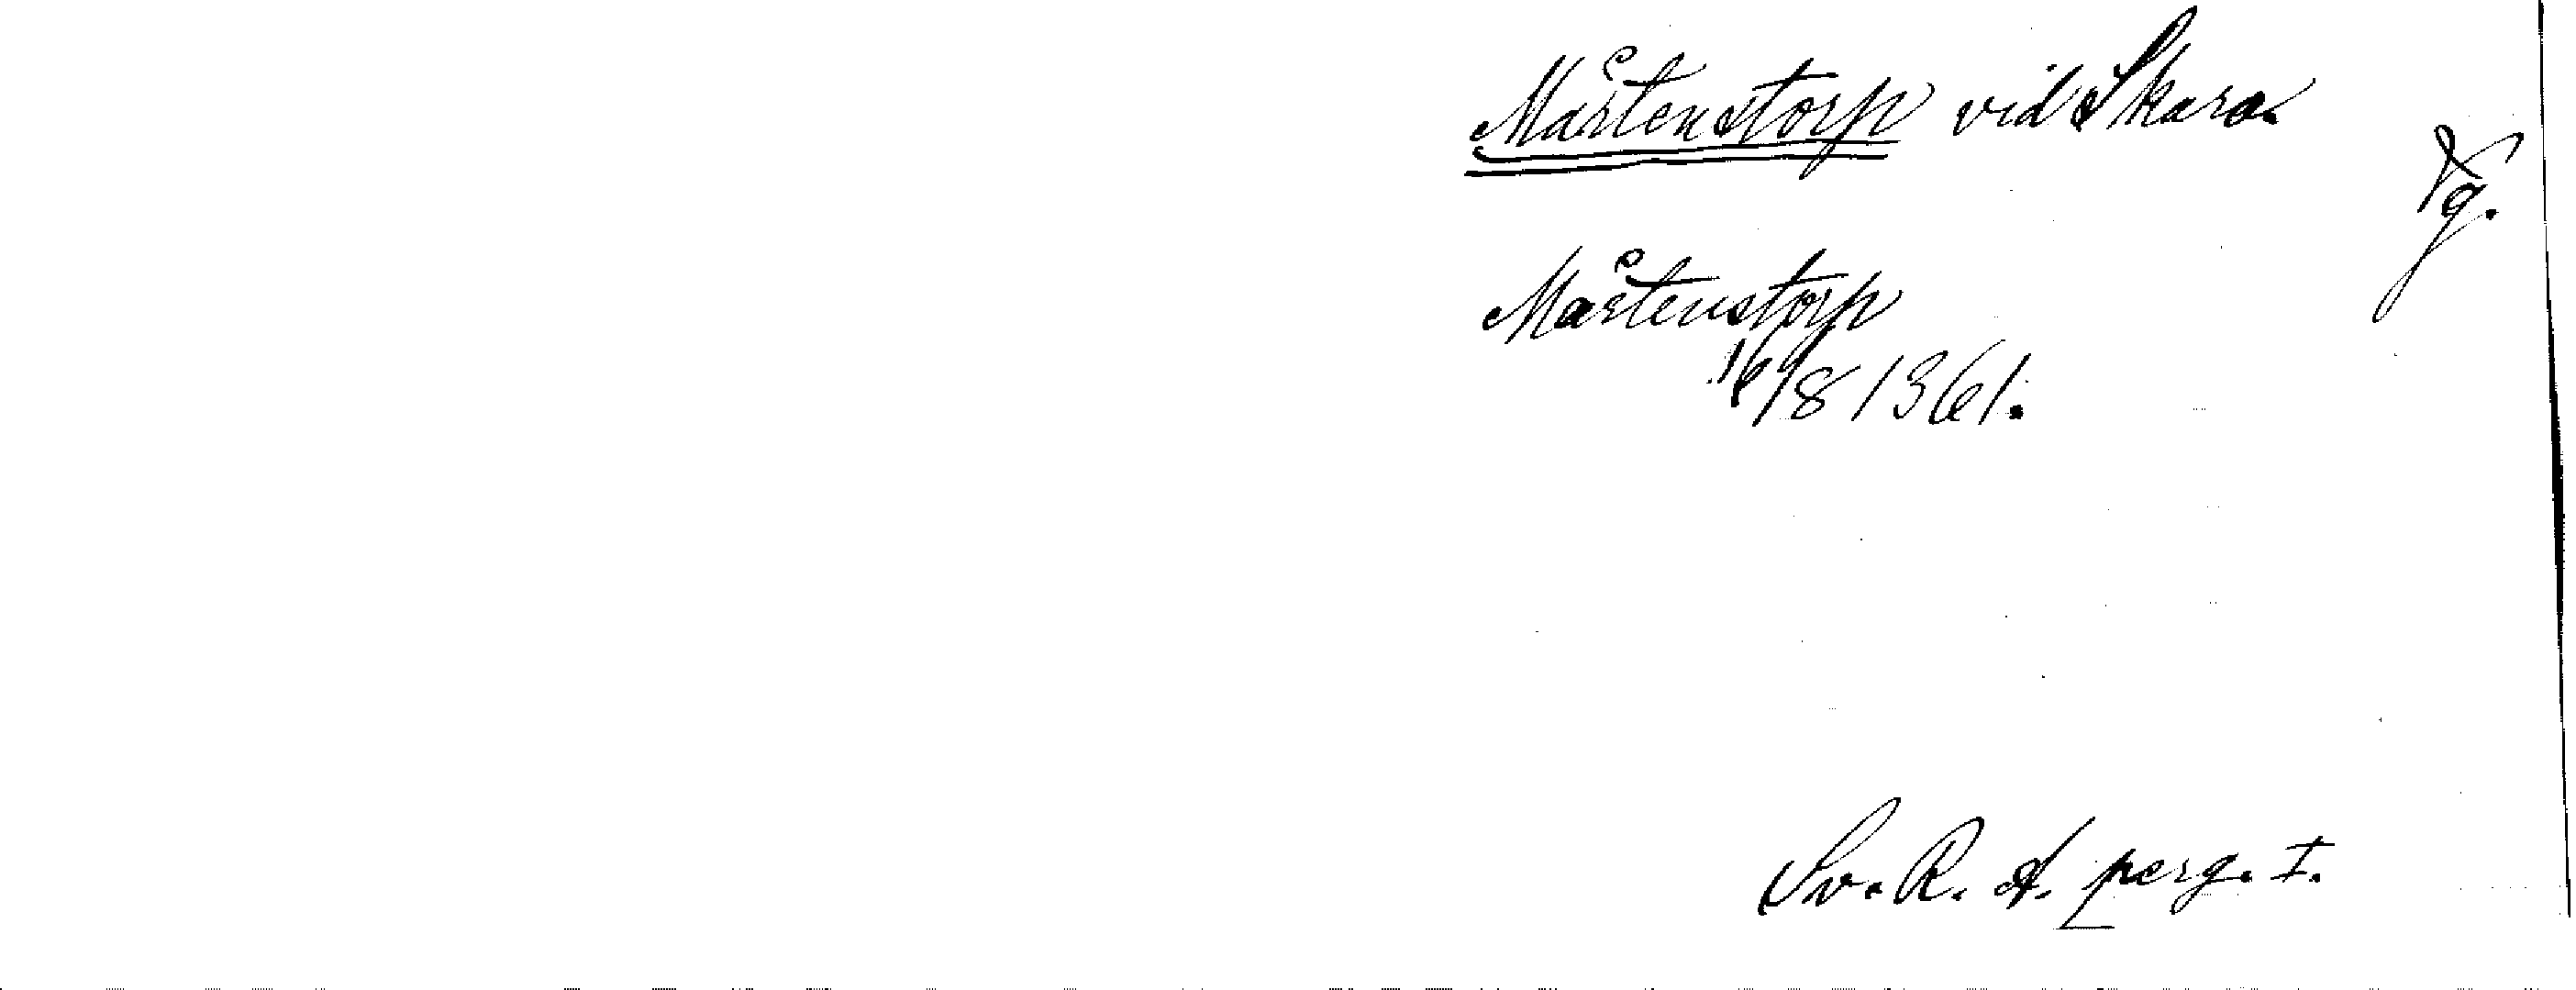 Mårtenstorp vid Skara
Vg.
Mårtenstorp
16/8 1361.
Sv. R. A. perg. I.